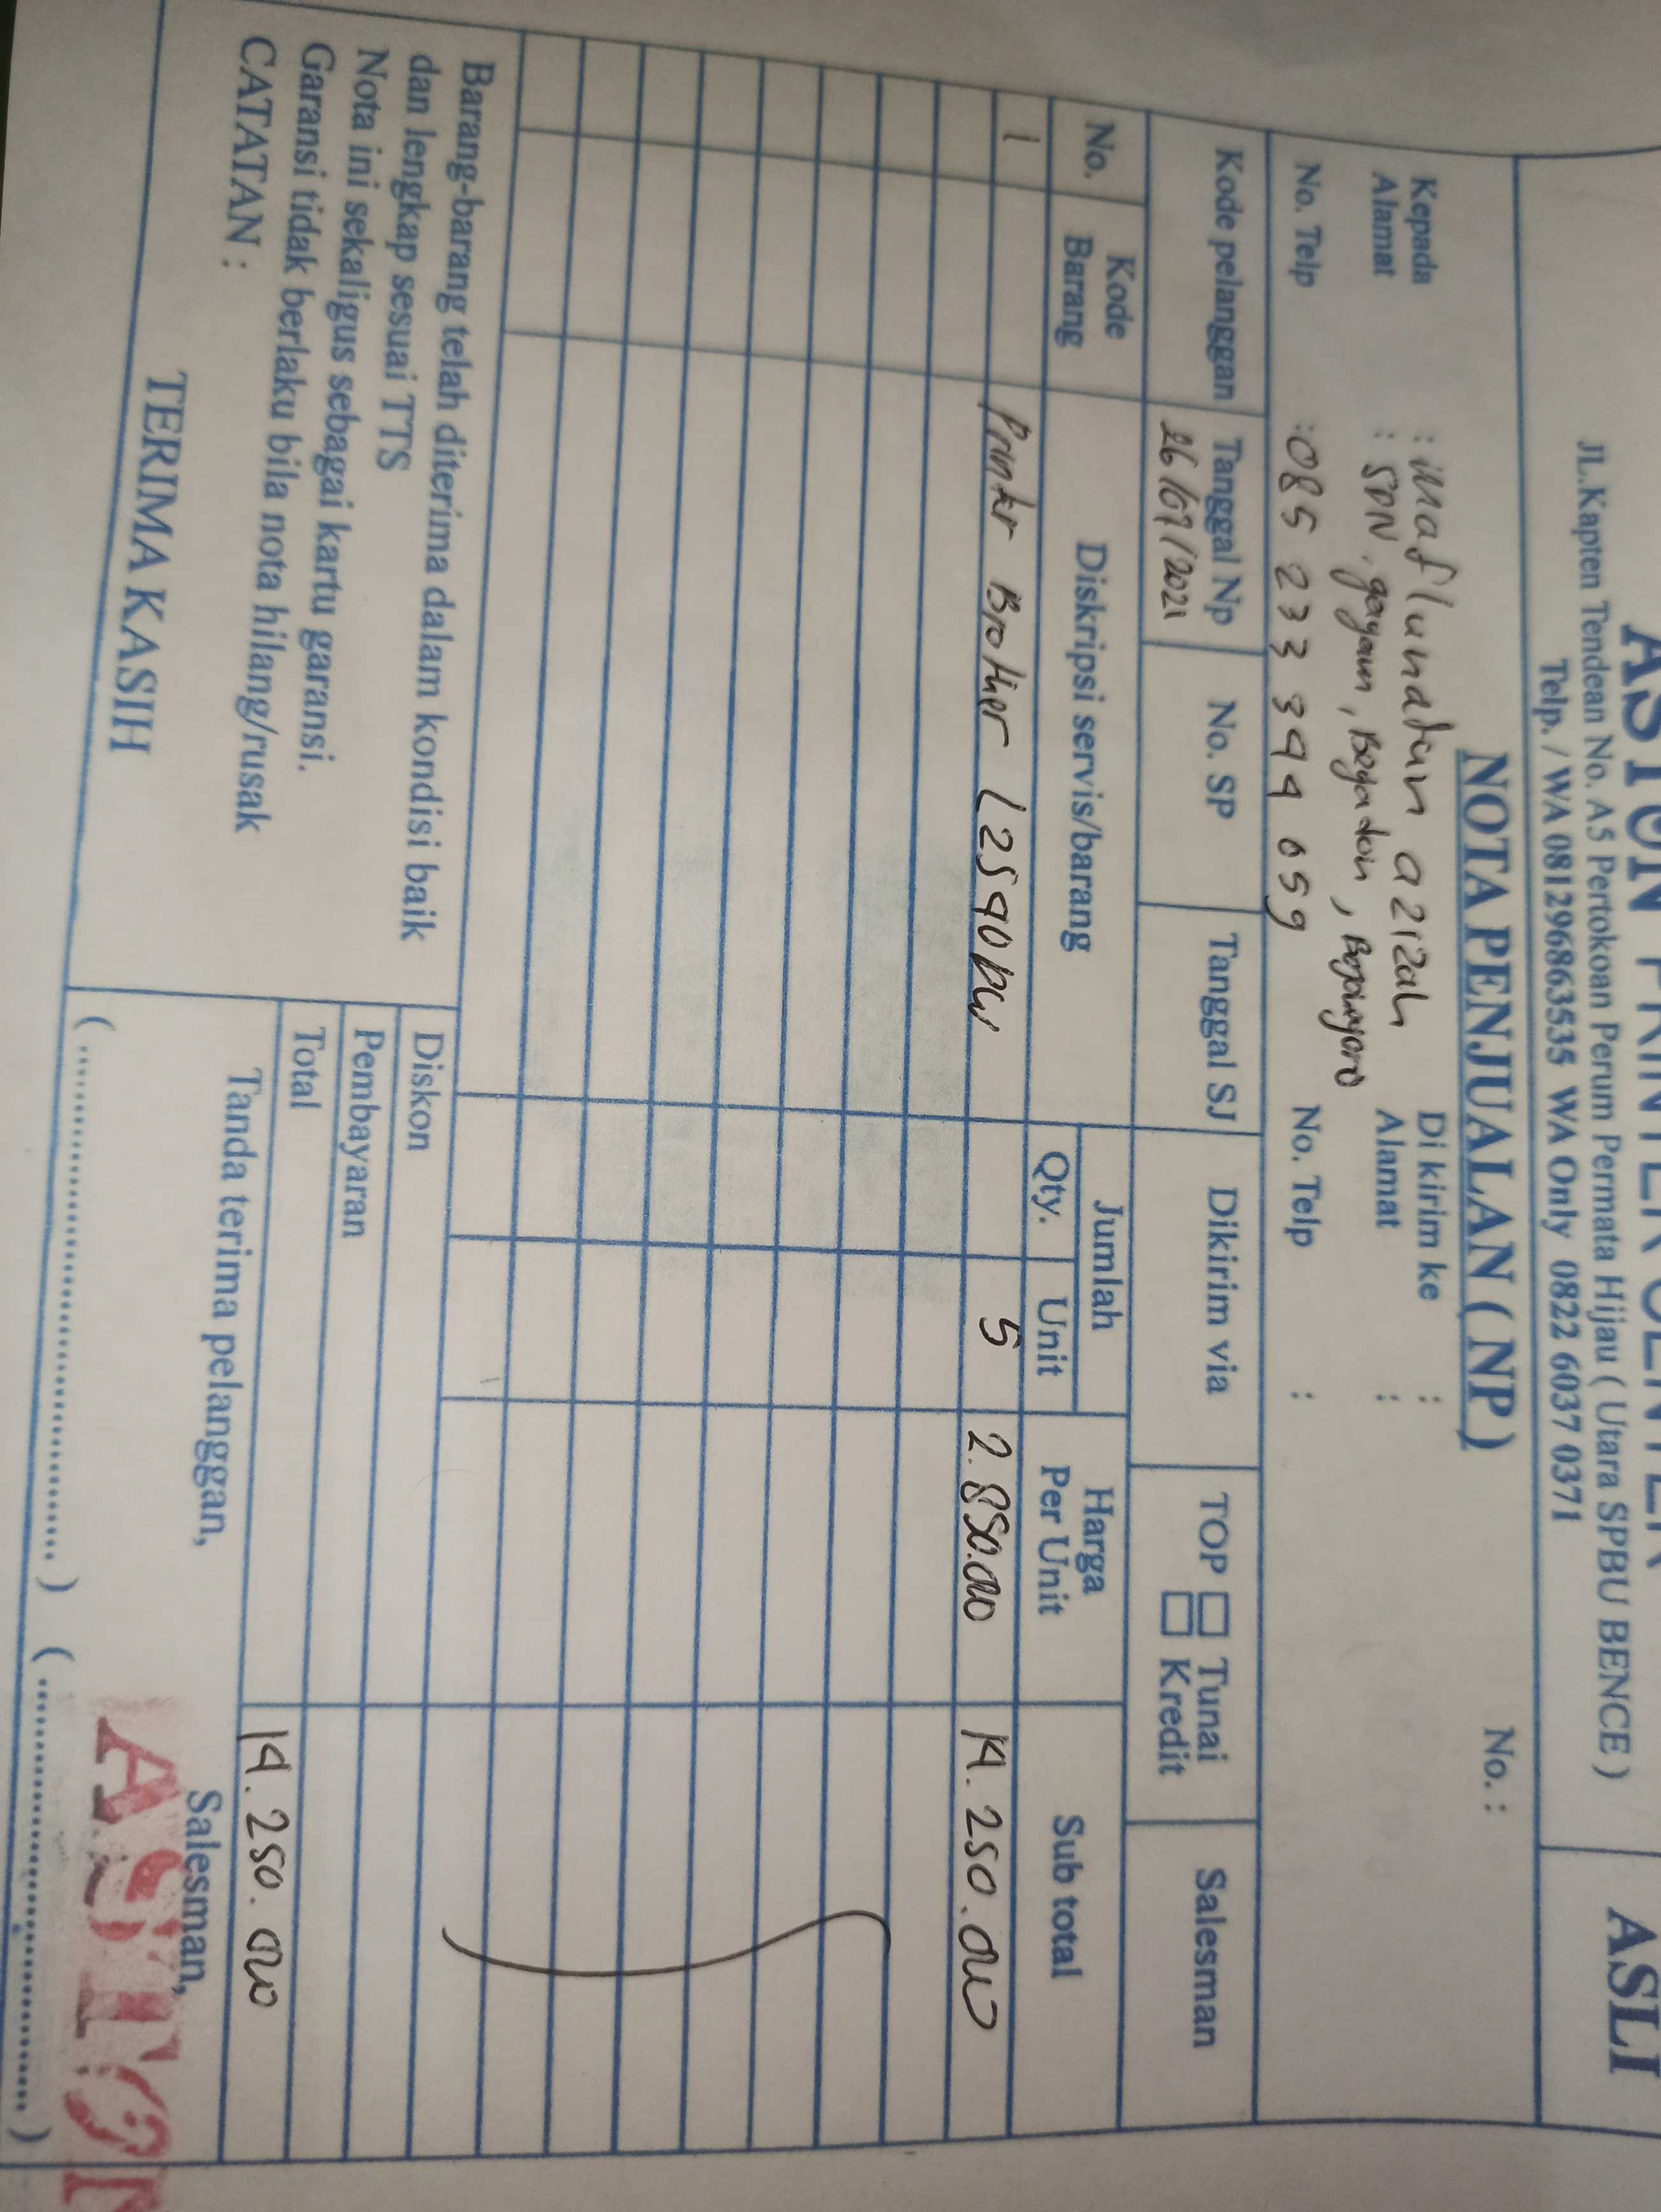 ASTON PRINTER CENTER
ASLI
JL.Kapten Tendean No. A5 Pertokoan Perum Permata Hijau ( Utara SPBU BENCE )
Telp. / WA 081296863535 WA Only 0822 6037 0371
NOTA PENJUALAN ( NP )
No. :
Kepada : maflunatun azizah Di kirim ke :
Alamat : SDN. gayam, Bojonegoro Alamat :
No. Telp : 085 233 394 059 No. Telp :
Kode pelanggan Tanggal Np No. SP Tanggal SJ Dikirim via TOP Tunai Kredit Salesman
26/07/2021
No. Kode Barang Diskripsi servis/barang Jumlah Qty. Unit Harga Per Unit Sub total
1 Printer Brother L2540DW 5 2.850.000 14.250.000
Barang-barang telah diterima dalam kondisi baik
dan lengkap sesuai TTS
Nota ini sekaligus sebagai kartu garansi.
Garansi tidak berlaku bila nota hilang/rusak
CATATAN :
TERIMA KASIH
Diskon
Pembayaran
Total 14.250.000
Tanda terima pelanggan, Salesman,
(..............................) (..............................)
ASTON